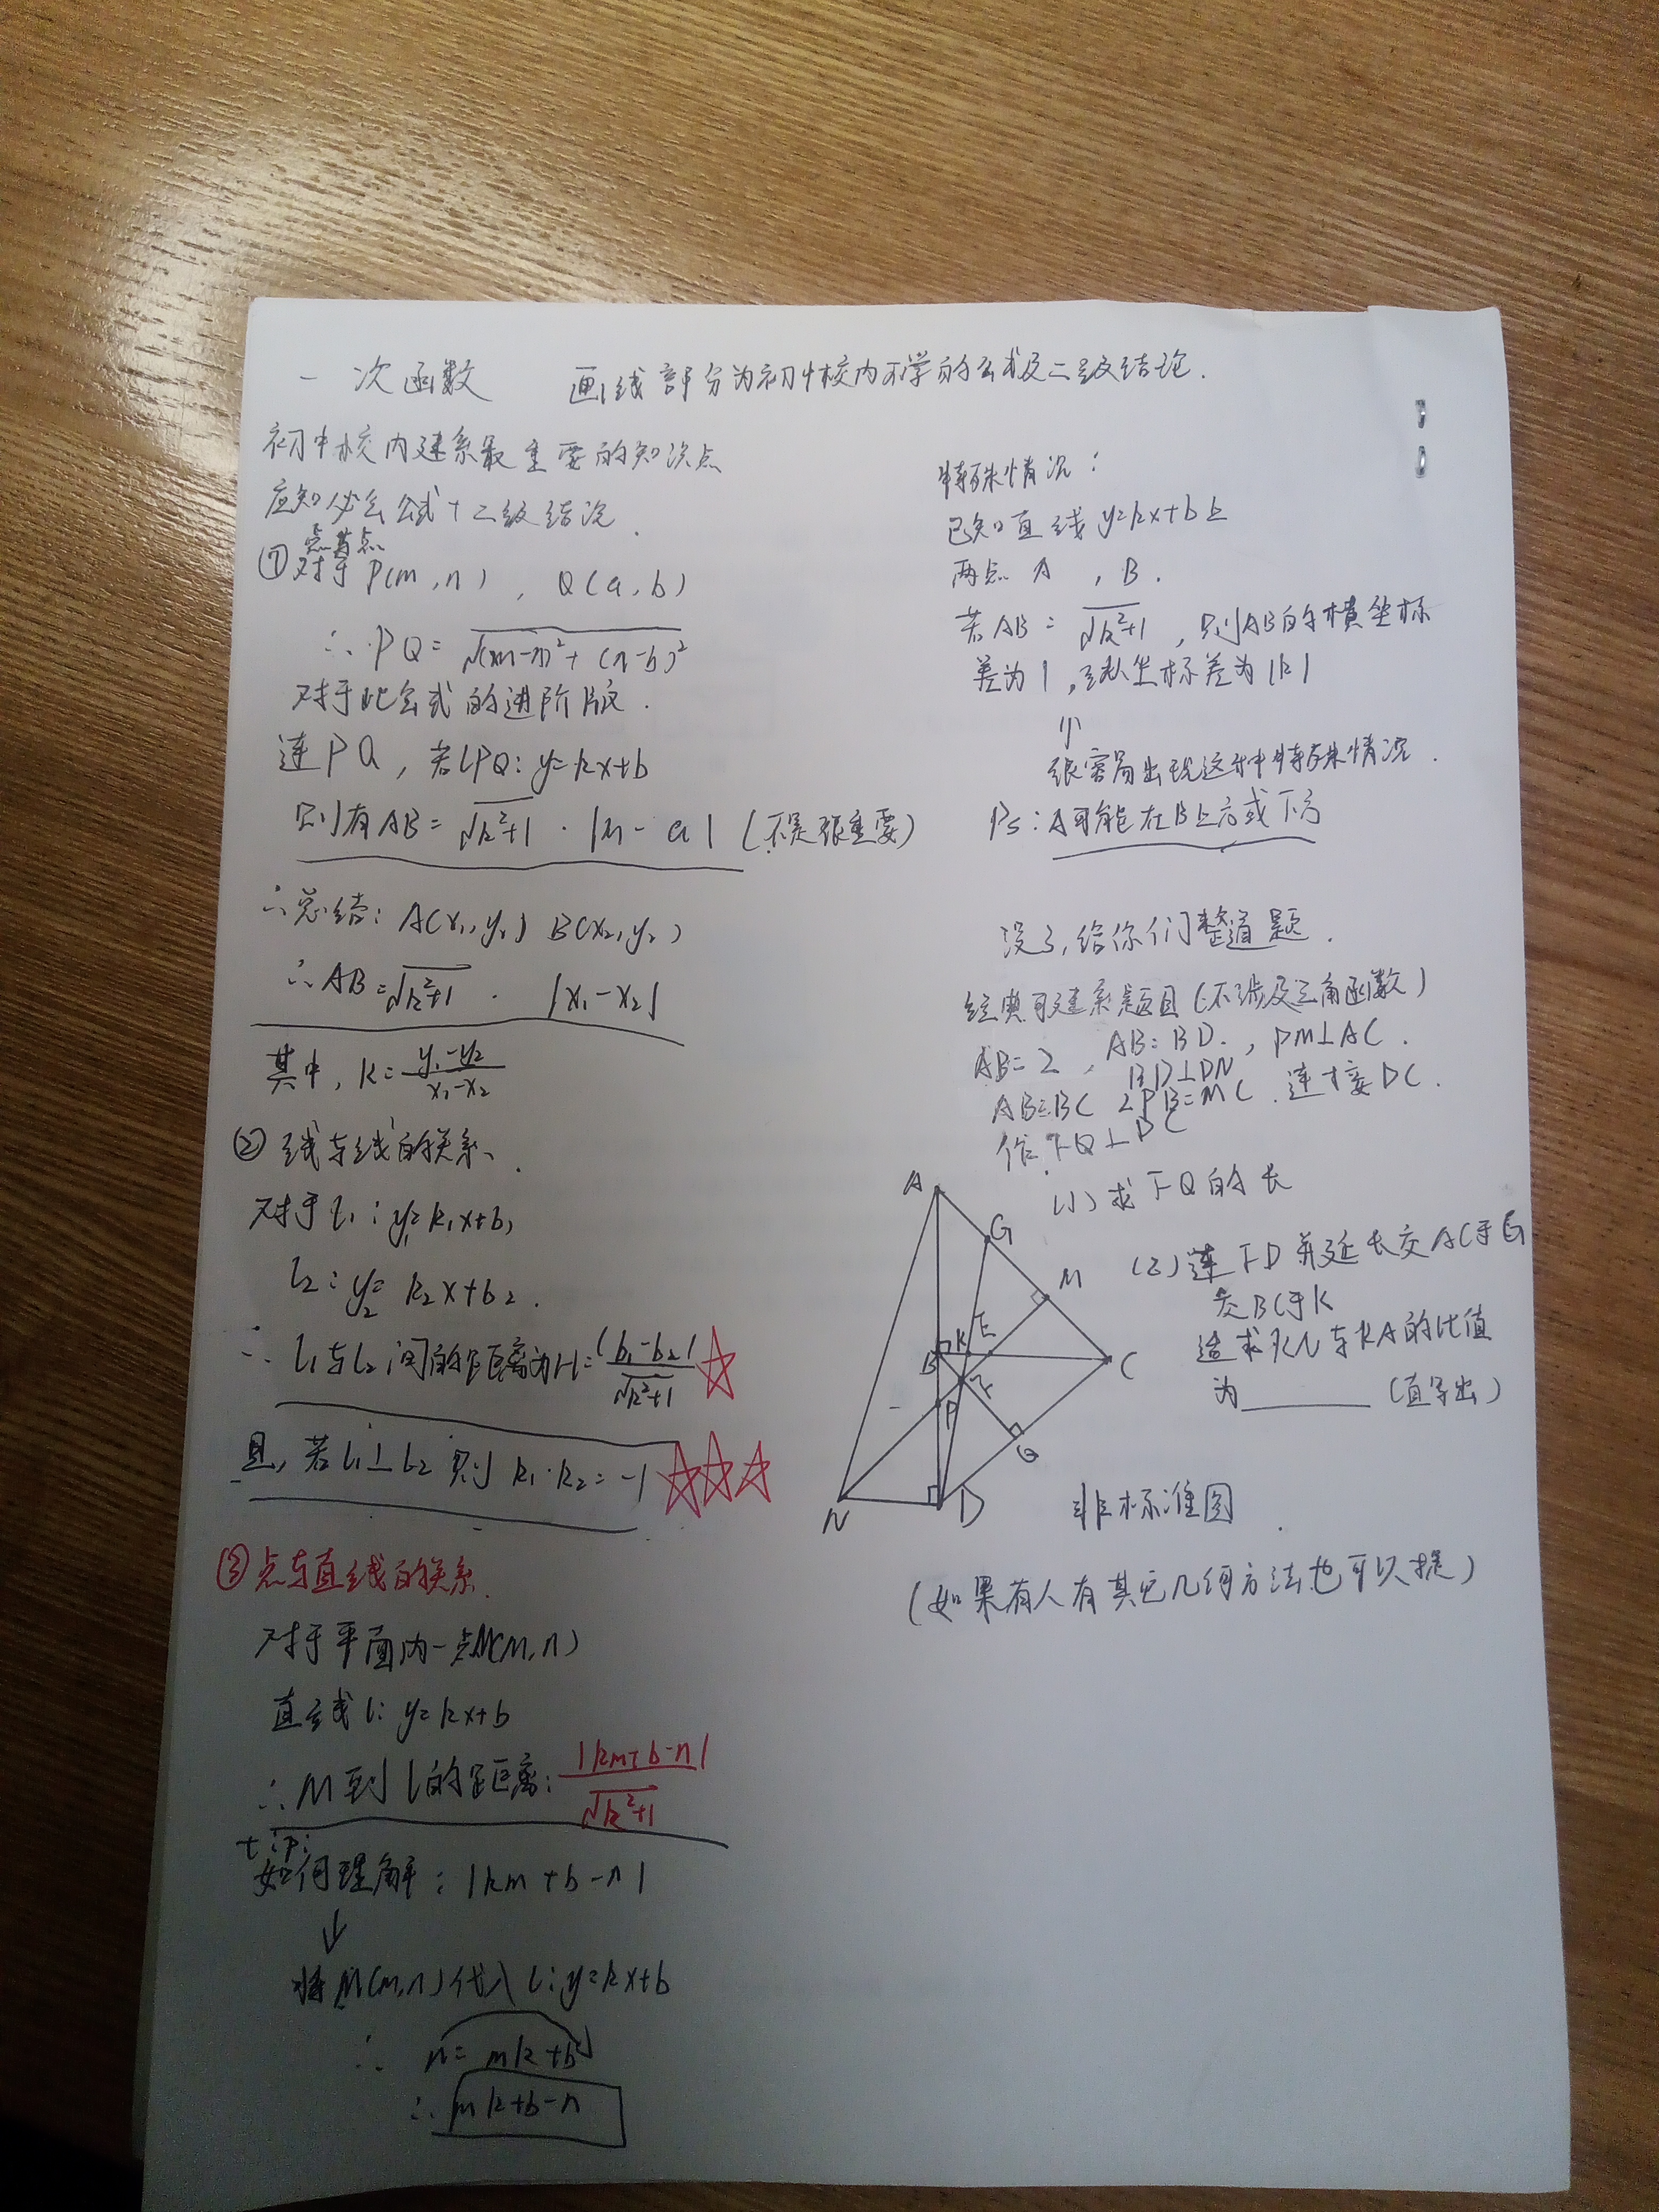 一次函数 画线部分为初中校内不学的公式及二级结论.
初中校内建系最重要的知识点
应知必会公式+二级结论.
①点与点
对于P(m,n), Q(a,b)
∴PQ=√(m-a)²+(n-b)²
对于此公式的进阶版.
连PQ,若lPQ:y=kx+b
则有AB=√k²+1·|m-a|(不是很重要)
∴总结:A(x₁,y₁) B(x₂,y₂)
∴AB=√k²+1·|x₁-x₂|
其中,k=y₁-y₂/x₁-x₂
②线与线的关系.
对于l₁:y₁=k₁x+b₁
l₂:y₂=k₂x+b₂.
∴l₁与l₂间的距离为H=|b₁-b₂|/√k²+1
且,若l₁⊥l₂则k₁·k₂=-1
③点与直线的关系.
对于平面内一点M(m,n)
直线l:y=kx+b
∴M到l的距离:|km+b-n|/√k²+1
tip:
如何理解:|km+b-n|
↓
将M(m,n)代入l:y=kx+b
∴n=mk+b
∴mk+b-n
特殊情况:
已知直线y=kx+b上
两点A,B.
若AB=√k²+1,则AB的横坐标
差为1,纵坐标差为|k|
⇑
很容易出现这种特殊情况.
Ps:A可能在B上方或下方
没了,给你们整道题.
经典可建系题目(不涉及三角函数)
AB=2,AB=BD.,PM⊥AC.
BD⊥DN
AB=BC 2PB=MC.连接DC.
作FQ⊥DC
(1)求FQ的长
(2)连FD并延长交AC于G
交BC于K
请求KN与KA的比值
为______(直写出)
A
G
M
E
K
B
C
F
P
Q
N
D
非标准图.
(如果有人有其它几何方法也可以提)